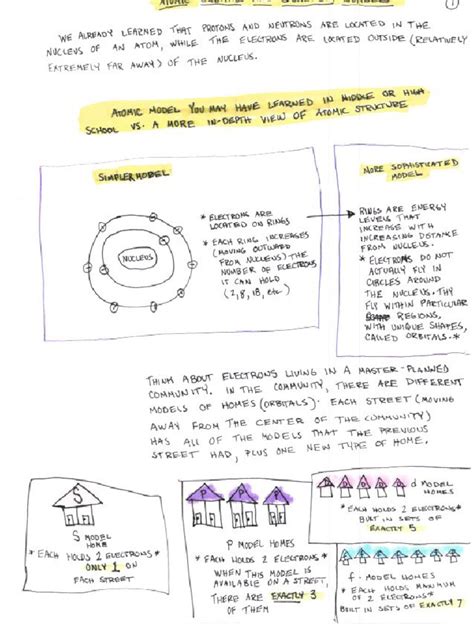 ATOMIC
①
WE ALREADY LEARNED THAT PROTONS AND NEUTRONS ARE LOCATED IN THE
NUCLEUS OF AN ATOM, WHILE THE ELECTRONS ARE LOCATED OUTSIDE (RELATIVELY
EXTREMELY FAR AWAY) OF THE NUCLEUS.
ATOMIC MODEL YOU MAY HAVE LEARNED IN MIDDLE OR HIGH
SCHOOL VS. A MORE IN-DEPTH VIEW OF ATOMIC STRUCTURE
SIMPLER MODEL
NUCLEUS
* ELECTRONS ARE
LOCATED ON RINGS
* EACH RING INCREASES
(MOVING OUTWARD
FROM NUCLEUS) THE
NUMBER OF ELECTRONS
IT CAN HOLD
(2,8,18, etc)
MORE SOPHISTICATED
MODEL
RINGS ARE ENERGY
LEVELS THAT
INCREASE WITH
INCREASING DISTANCE
FROM NUCLEUS.
* ELECTRONS DO NOT
ACTUALLY FLY IN
CIRCLES AROUND
THE NUCLEUS. THY
FLY WITHIN PARTICULAR
REGIONS,
WITH UNIQUE SHAPES,
CALLED ORBITALS.*
THINK ABOUT ELECTRONS LIVING IN A MASTER-PLANNED
COMMUNITY. IN THE COMMUNITY, THERE ARE DIFFERENT
MODELS OF HOMES (ORBITALS). EACH STREET (MOVING
AWAY FROM THE CENTER OF THE COMMUNITY)
HAS ALL OF THE MODELS THAT THE PREVIOUS
STREET HAD, PLUS ONE NEW TYPE OF HOME.
S
S MODEL
HOME
* EACH HOLDS 2 ELECTRONS*
ONLY 1 ON
EACH STREET
P P P
P MODEL HOMES
* EACH HOLDS 2 ELECTRONS*
WHEN THIS MODEL IS
AVAILABLE ON A STREET,
THERE ARE EXACTLY 3
OF THEM
d MODEL
HOMES
* EACH HOLDS 2 ELECTRONS*
BUILT IN SETS OF
EXACTLY 5
f - MODEL HOMES
* EACH HOLDS MAXIMUM
OF 2 ELECTRONS*
BUILT IN SETS OF EXACTLY 7